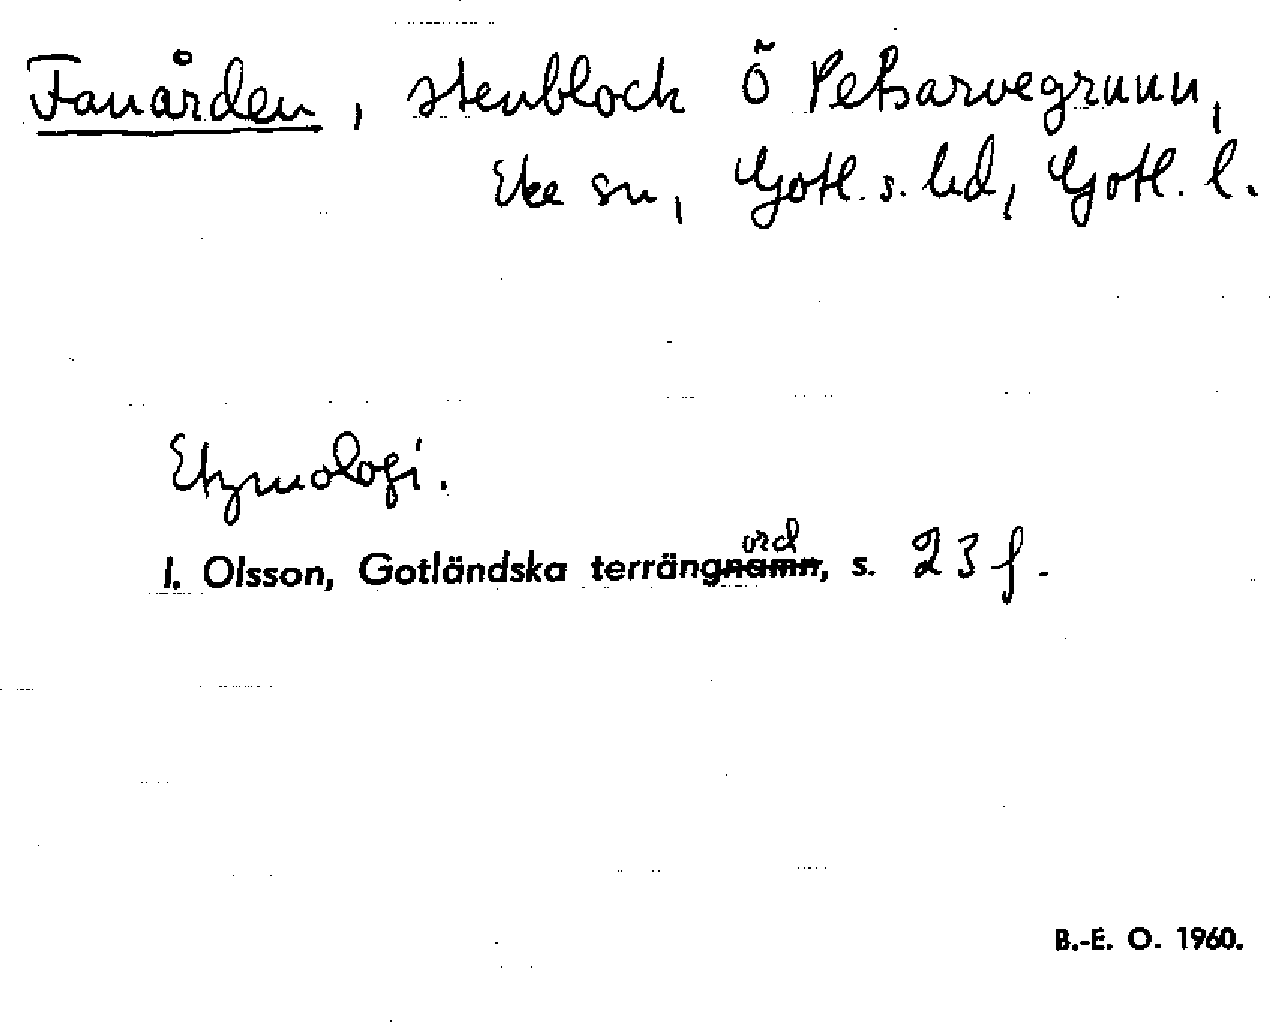 Fanården, stenblock Ö Petsarvegrunn,
Eke sn, Gotl. s. hd, Gotl. l.
Etymologi.
ord
I. Olsson, Gotländska terrängnamn, s. 23 f.
B.-E. O. 1960.